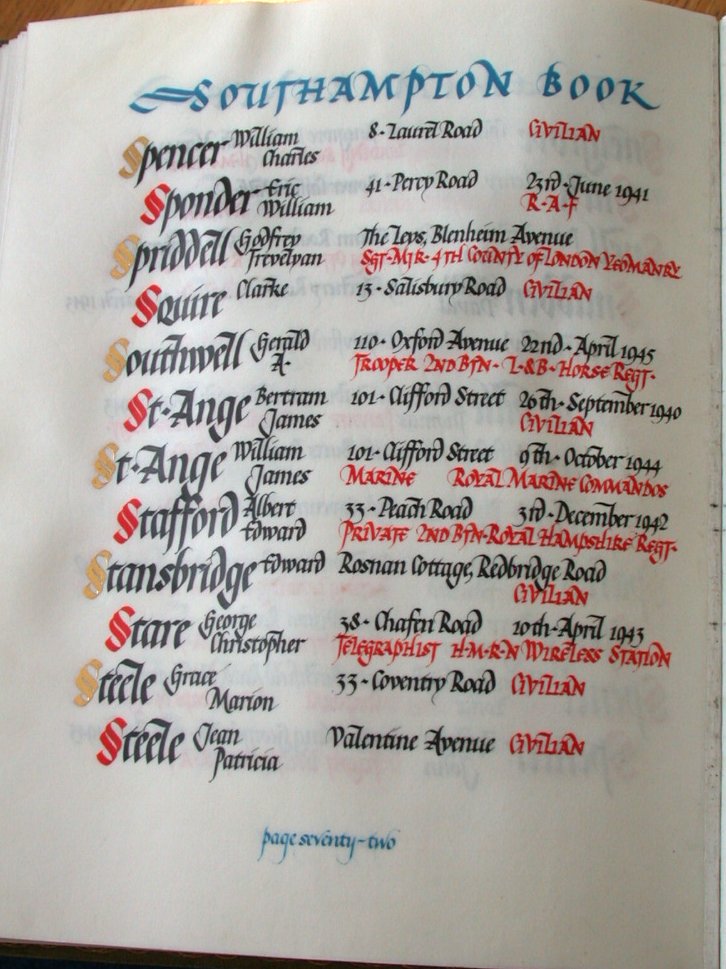 SOUTHAMPTON BOOK
Spencer William 8· Laurel Road CIVILIAN
Charles
Sponder Eric 41· Percy Road 23rd· June 1941
William R·A·F
Spriddell Godfrey The Leys, Blenheim Avenue
Trevelyan SGT·MJR· 4TH COUNTY OF LONDON YEOMANRY
Squire Clarke 13· Salisbury Road CIVILIAN
Southwell Gerald 110· Oxford Avenue 22nd· April 1945
A· TROOPER 2ND BTN· L·&·B· HORSE REGT·
St·Ange Bertram 101· Clifford Street 26th· September 1940
James CIVILIAN
St·Ange William 101· Clifford Street 9th· October 1944
James MARINE ROYAL MARINE COMMANDOS
Stafford Albert 33· Peach Road 3rd· December 1942
Edward PRIVATE 2ND BTN·ROYAL HAMPSHIRE REGT·
Stansbridge Edward Rosnan Cottage, Redbridge Road
CIVILIAN
Stare George 38· Chafen Road 10th· April 1943
Christopher TELEGRAPHIST H·M·R·N WIRELESS STATION
Steele Grace 33· Coventry Road CIVILIAN
Marion
Steele Jean Valentine Avenue CIVILIAN
Patricia
page seventy-two